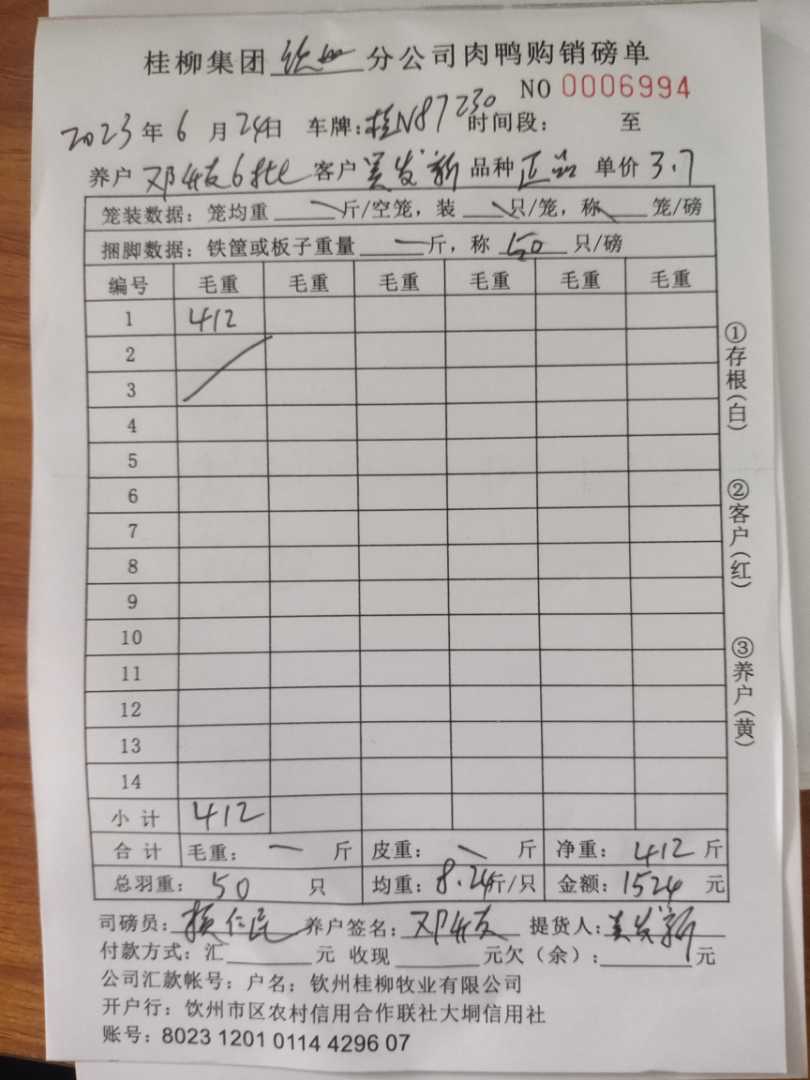 桂柳集团 钦州 分公司肉鸭购销磅单
NO 0006994
2023 年 6 月 24 日 车牌：桂N87230 时间段： 至
养户 邓 友 6批 客户 吴发新 品种 正品 单价 3.7
笼装数据：笼均重 — 斤/空笼，装 — 只/笼，称 — 笼/磅
捆脚数据：铁筐或板子重量 — 斤，称 50 只/磅
编号 毛重 毛重 毛重 毛重 毛重 毛重
1 412
2
3
4
5
6
7
8
9
10
11
12
13
14
小计 412
合计 毛重： — 斤 皮重： — 斤 净重： 412 斤
总羽重： 50 只 均重： 8.24 斤/只 金额： 1524 元
司磅员： 仁 养户签名： 邓 友 提货人： 吴发新
付款方式：汇 元 收现 元欠（余）： 元
公司汇款帐号：户名：钦州桂柳牧业有限公司
开户行：饮州市区农村信用合作联社大垌信用社
账号：8023 1201 0114 4296 07
①存根(白)
②客户(红)
③养户(黄)